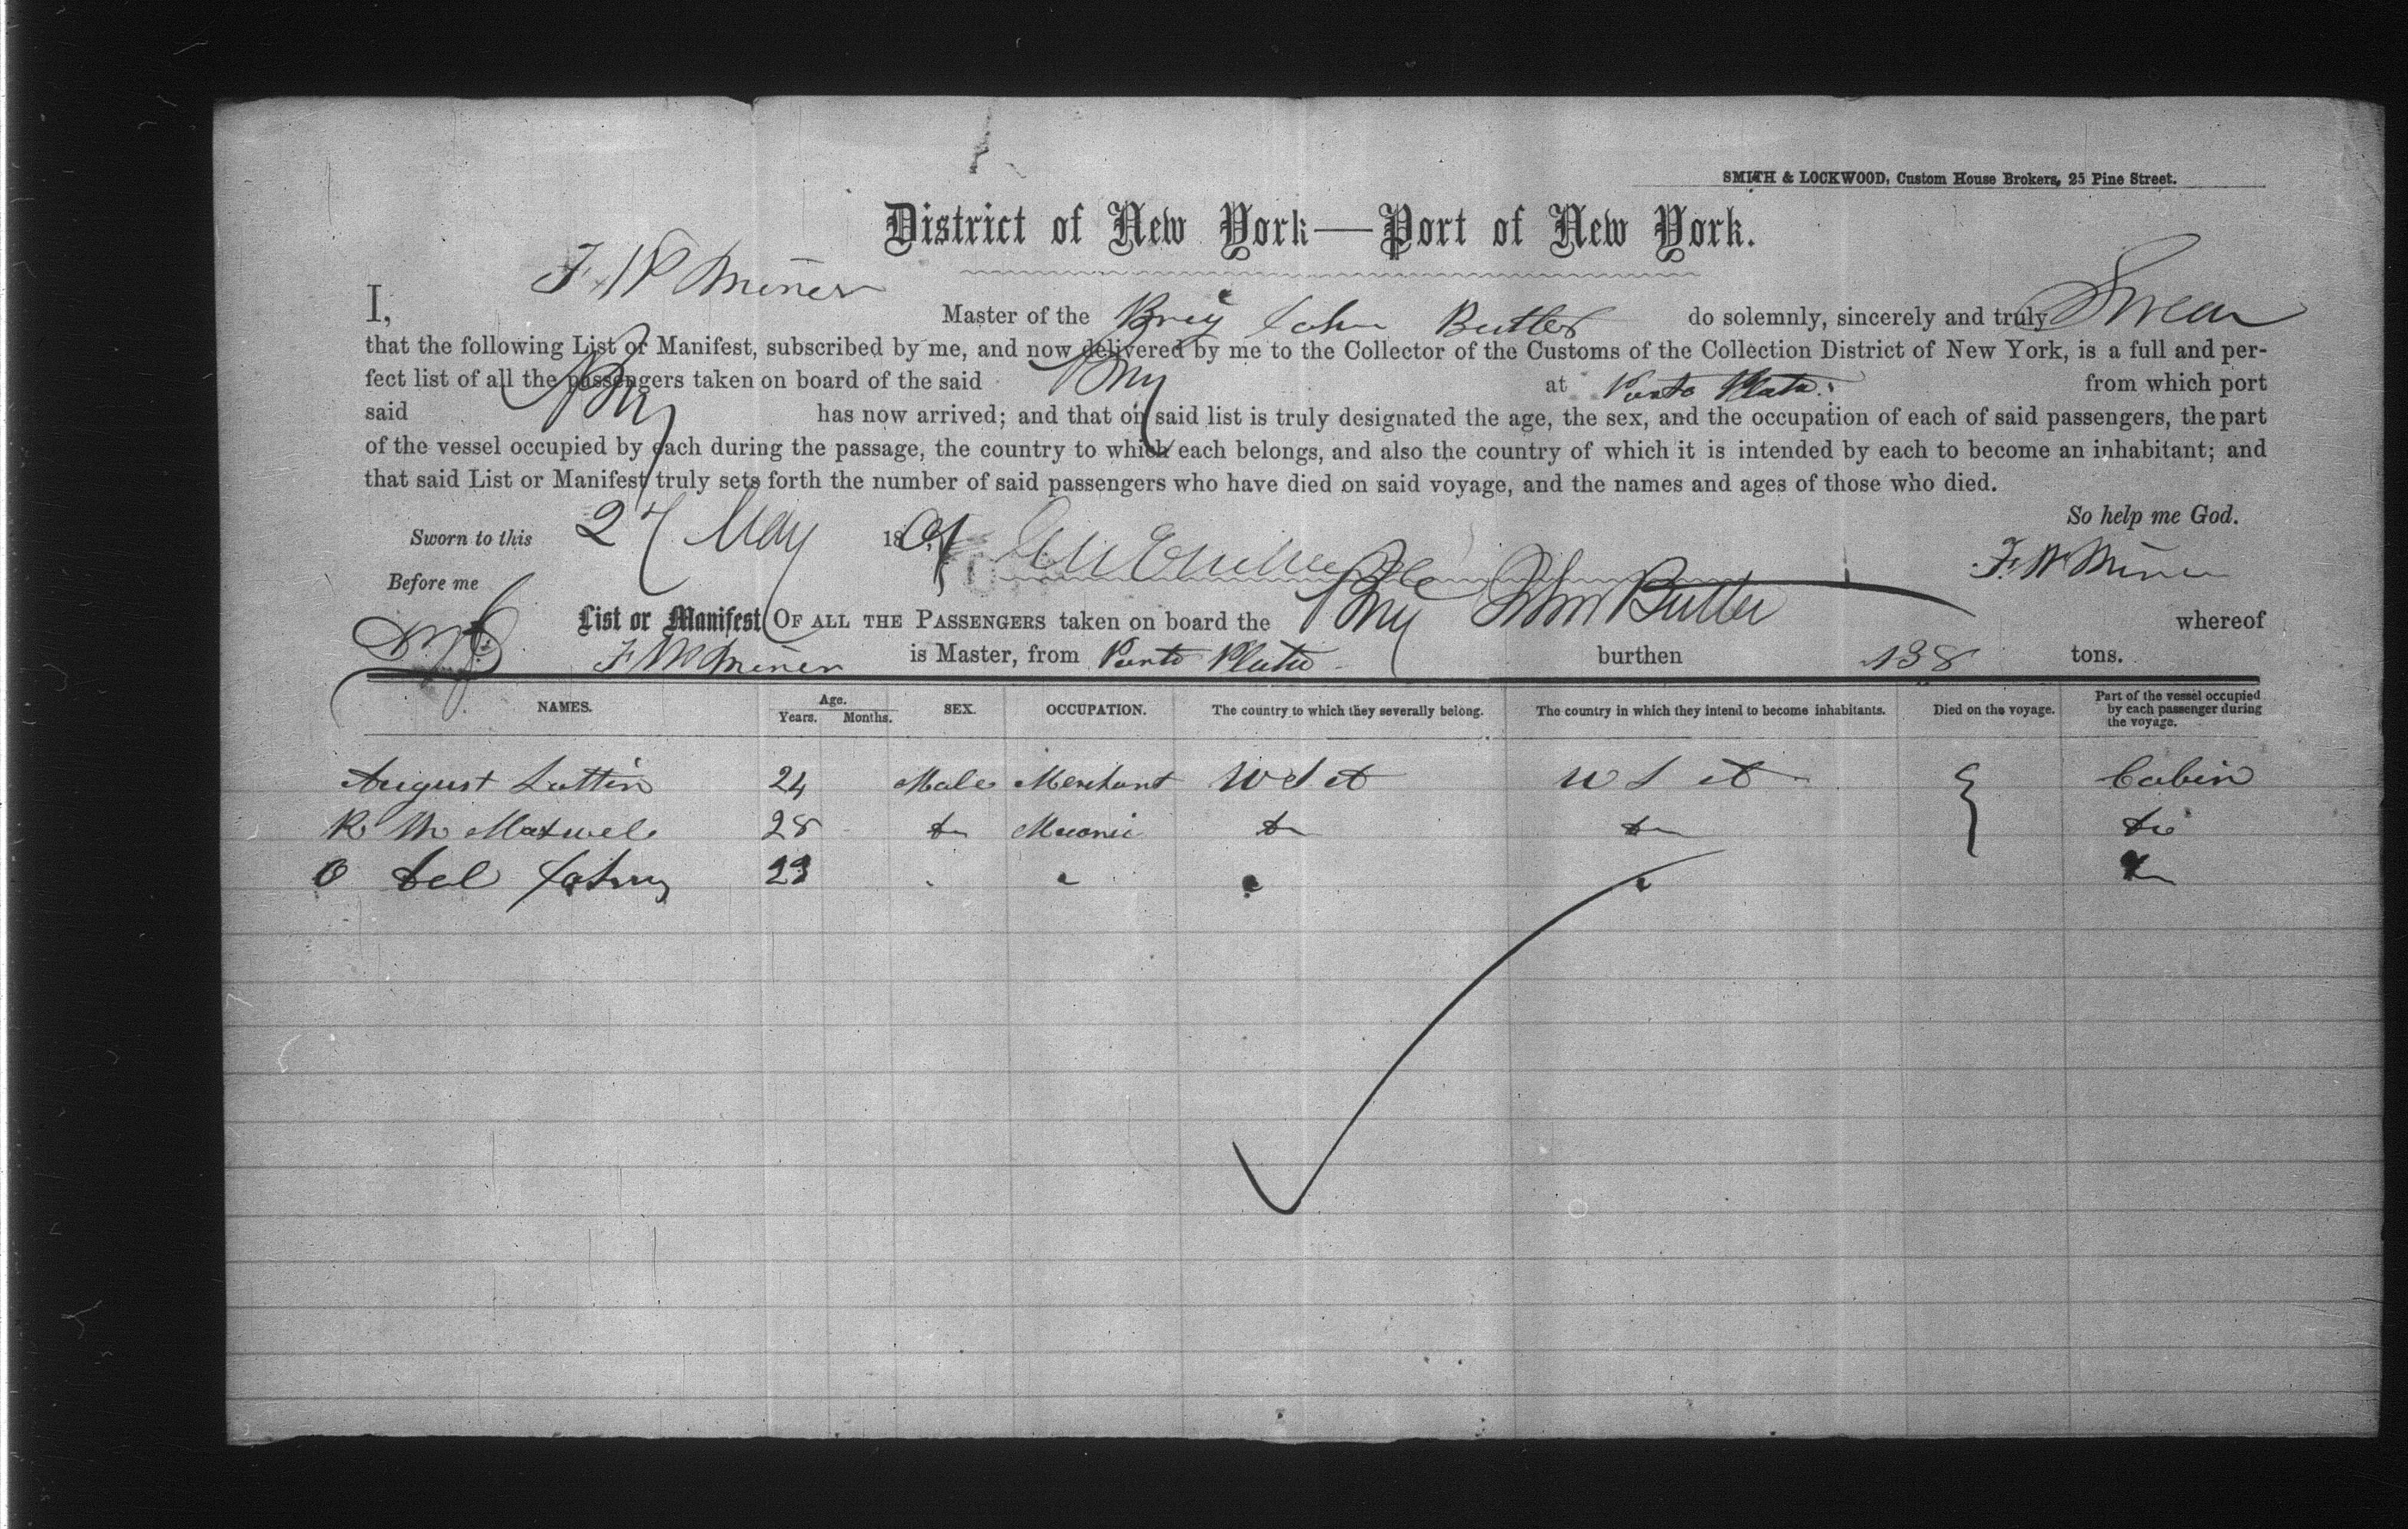 SMITH & LOCKWOOD, Custom House Brokers, 25 Pine Street.
District of New York—Port of New York.
I, F. W Miner Master of the Brig John Butler do solemnly, sincerely and truly Swear
that the following List or Manifest, subscribed by me, and now delivered by me to the Collector of the Customs of the Collection District of New York, is a full and per-
fect list of all the passengers taken on board of the said Brig at Porto Plata from which port
said Brig has now arrived; and that on said list is truly designated the age, the sex, and the occupation of each of said passengers, the part
of the vessel occupied by each during the passage, the country to which each belongs, and also the country of which it is intended by each to become an inhabitant; and
that said List or Manifest truly sets forth the number of said passengers who have died on said voyage, and the names and ages of those who died.
So help me God.
Sworn to this 27 May 18
F. W Miner
Before me
List or Manifest OF ALL THE PASSENGERS taken on board the Brig John Butler whereof
F W Miner is Master, from Porto Plata burthen 138 tons.
NAMES. Age. Years. Months. SEX. OCCUPATION. The country to which they severally belong. The country in which they intend to become inhabitants. Died on the voyage. Part of the vessel occupied by each passenger during the voyage.
August Luttin 24 Male Merchant U S A U S A Cabin
R M Maxwel 28 do do do do
O 23 do